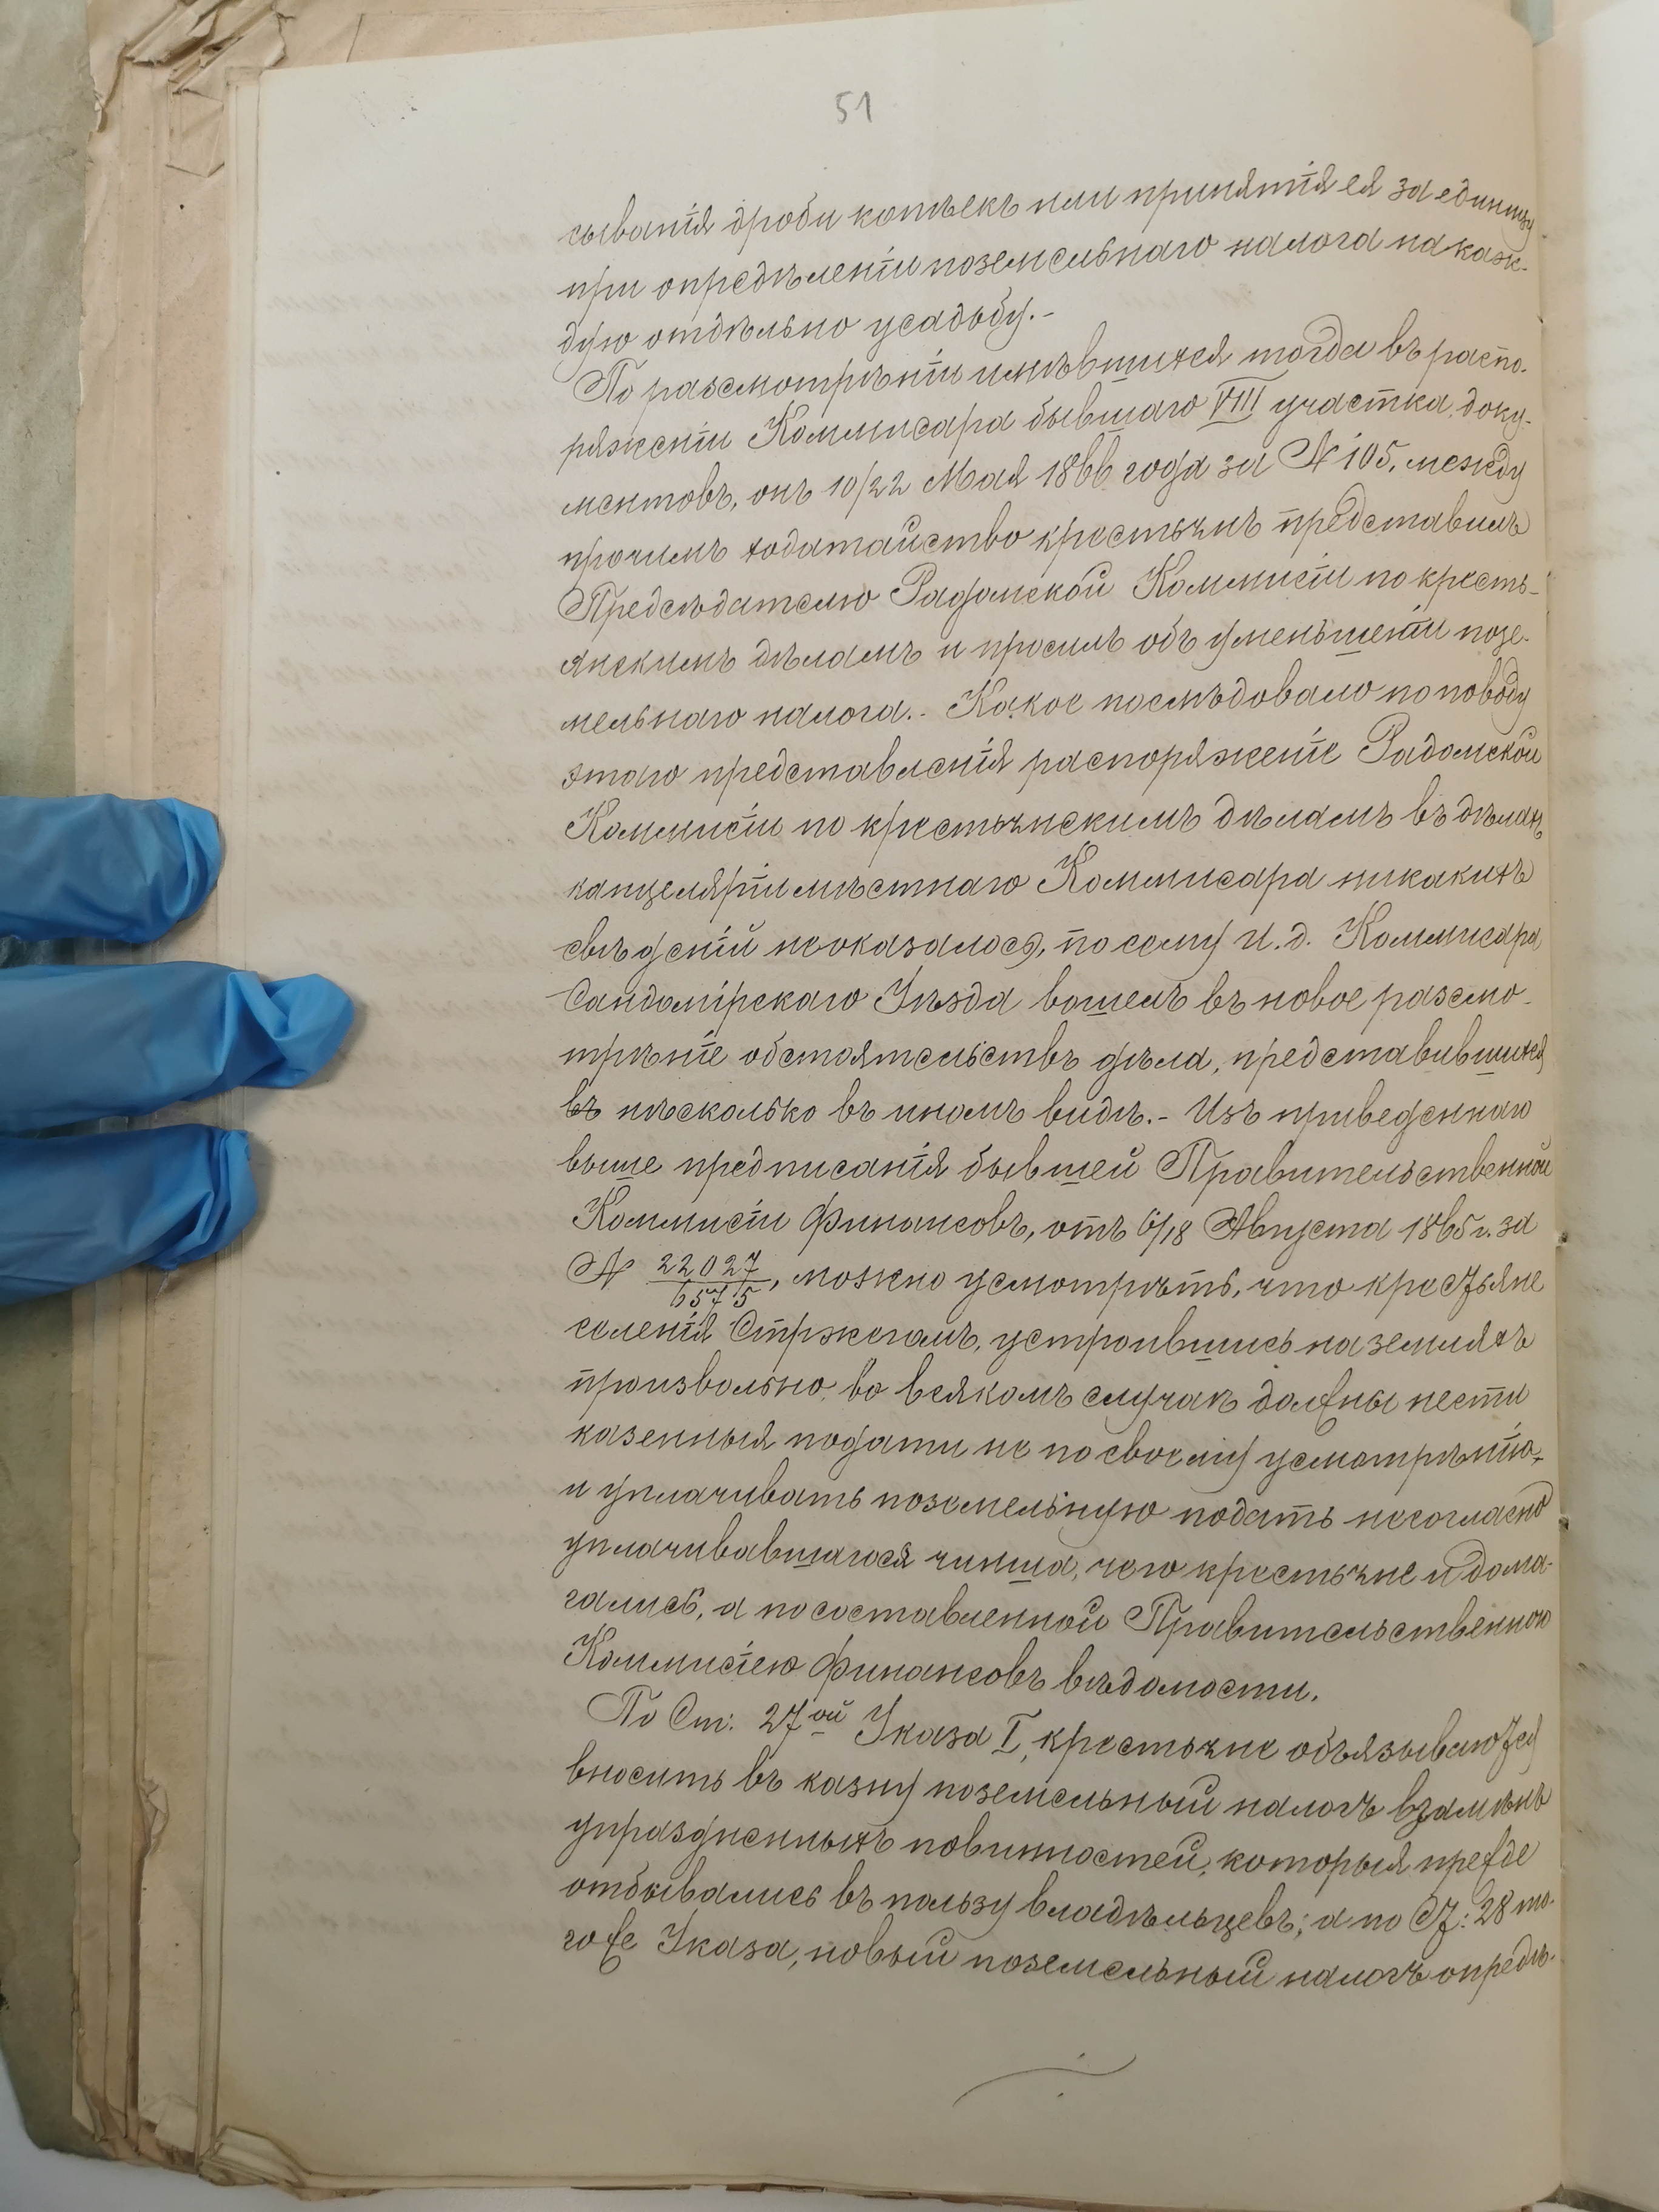 51
сыванія дроби копѣекъ или принятія ея за единицу
при опредѣленіи поземельнаго налога на каж-
дую отдѣльно усадьбу.-
По разсмотрѣніи имѣвшихся тогда въ распо-
ряженіи Коммисара бывшаго VIII участка, доку-
ментовъ, онъ 10/22 Мая 1866 года за № 105, между
прочимъ ходатайство крестьянъ представилъ
Предсѣдателю Радомской Коммисіи по кресть-
янскимъ дѣламъ и просилъ объ уменьшеніи позе-
мельнаго налога.- Какое послѣдовало по поводу
этаго представленія распоряженіе Радомской
Коммисіи по крестьянскимъ дѣламъ въ дѣлахъ
канцеляріи мѣстнаго Коммисара никакихъ
свѣденій неоказалося, посему И.д. Коммисара
Сандомірскаго Уѣзда вошелъ въ новое разсмо-
трѣніе обстоятельствъ дѣла, представившихся
въ нѣсколько въ иномъ видѣ.- Изъ приведеннаго
выше предписанія бывшей Правительственной
Коммисіи Финансовъ, отъ 6/18 Августа 1865 г. за
№ 22027/6575, можно усмотрѣть, что крестьяне
селенія Стржегомъ, устроившись на земляхъ
произвольно, во всякомъ случаѣ должны нести
казенныя подати не по своему усмотрѣнію,
и уплачивать поземельную подать несогласно
уплачивавшагося чинша, чего крестьяне и дома-
гались, а по составленной Правительственною
Коммисіею Финансовъ вѣдомости.
По Ст: 27ой Указа I, крестьяне объязываются
вносить въ казну поземельный налогъ взамѣнъ
упраздненныхъ повинностей, которыя прежде
отбывались въ пользу владѣльцевъ; а по Ст: 28 то-
го же Указа, новый поземельный налогъ опредѣ-